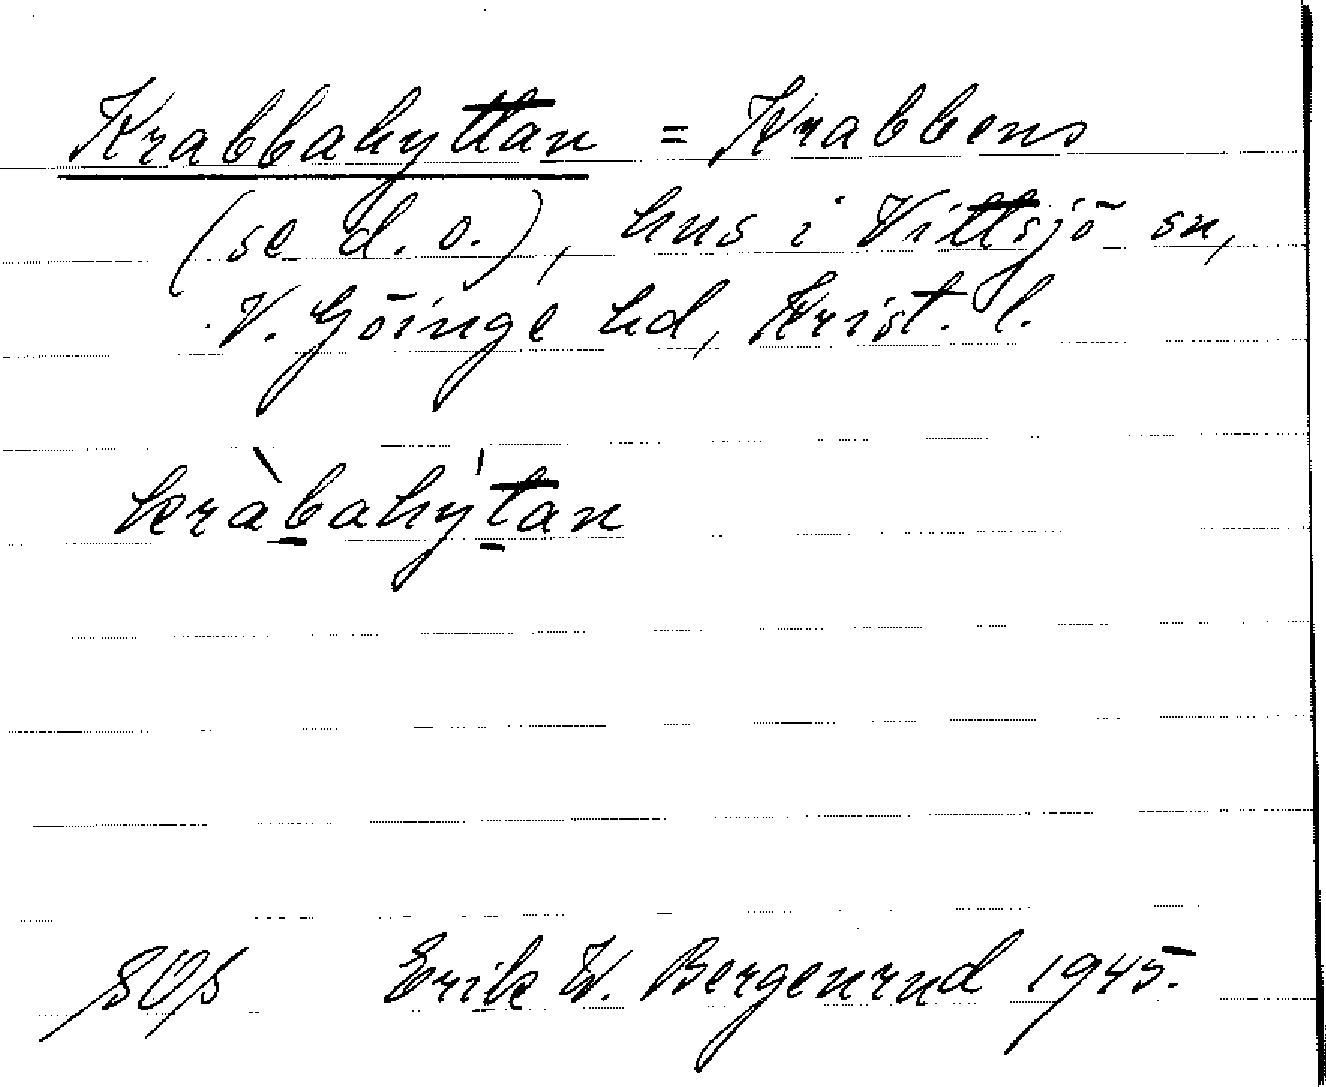 Krabbahyttan = Krabbens
(se d. o.), hus i Vittsjö sn,
V. Göinge hd, Krist. l.
kràb̠ahy̍t̠an
SOS Erik W. Bergenrud 1945.